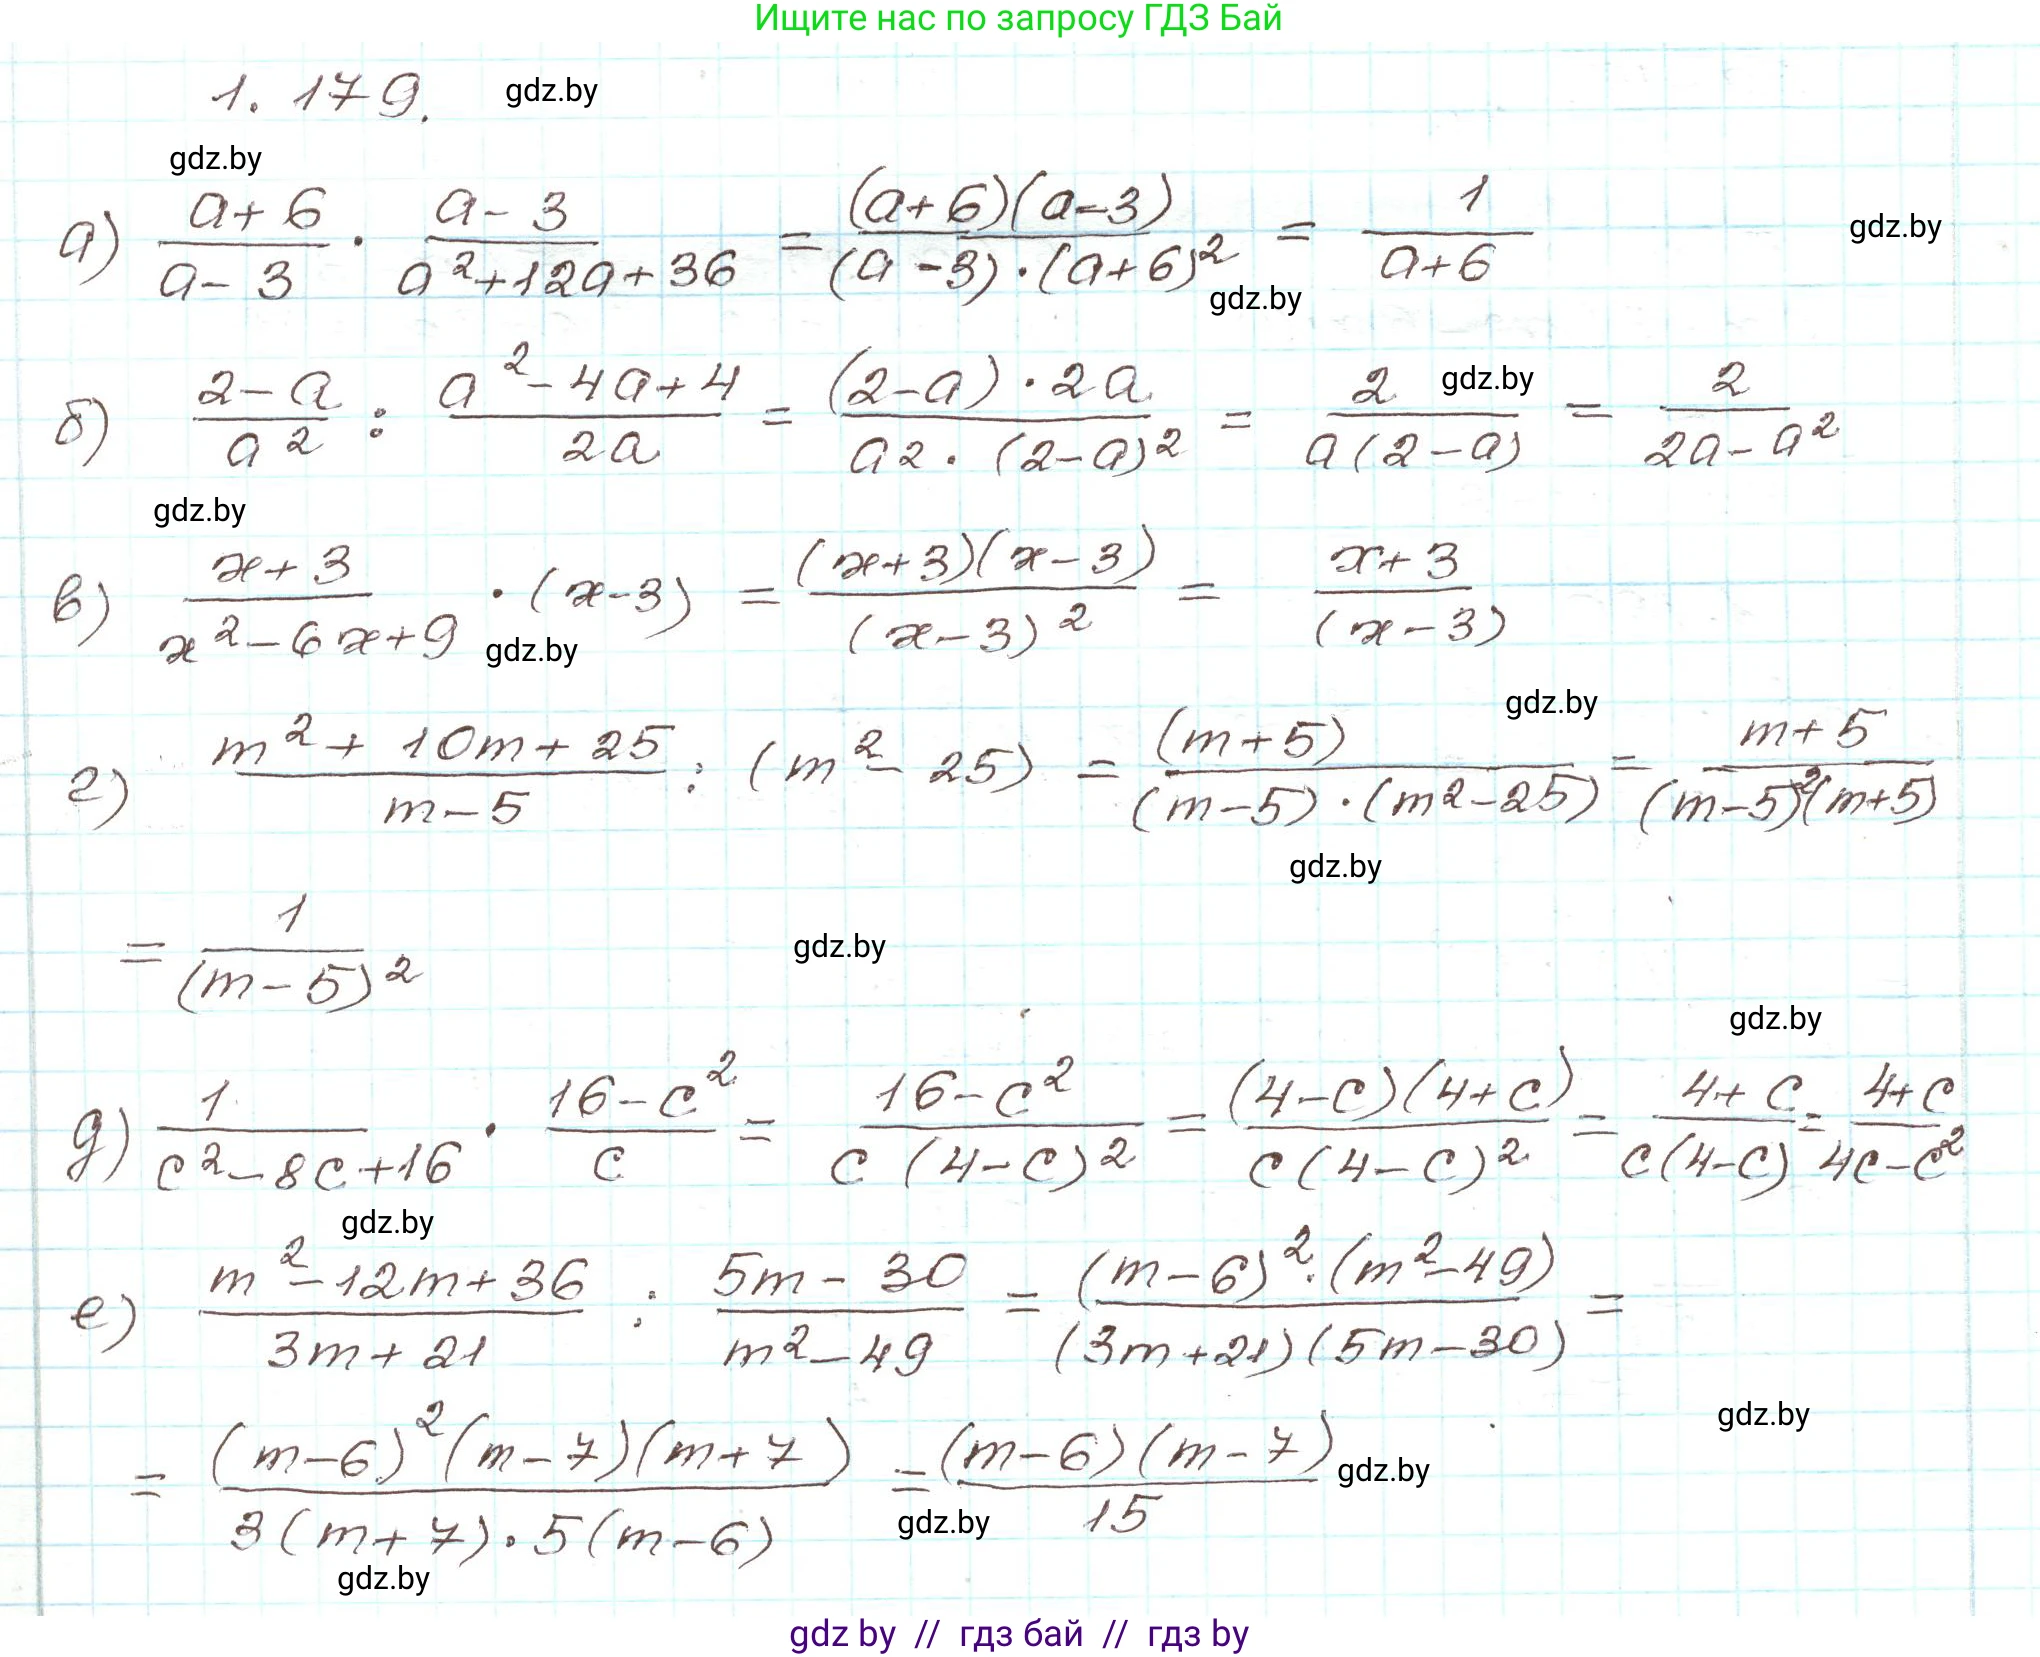 Ищите нас по запросу ГДЗ Бай
1. 179. gdz.by
gdz.by
а) (a+6)/(a-3) · (a-3)/(a²+12a+36) = (a+6)(a-3)/((a-3)·(a+6)²) = 1/(a+6) gdz.by
gdz.by
б) (2-a)/a² : (a²-4a+4)/2a = (2-a)·2a/(a2·(2-a)²) = 2/(a(2-a)) gdz.by = 2/(2a-a²)
gdz.by
в) (x+3)/(x²-6x+9) · (x-3) = (x+3)(x-3)/(x-3)² = (x+3)/(x-3)
gdz.by
gdz.by
г) (m²+10m+25)/(m-5) : (m²-25) = (m+5)/((m-5)·(m²-25)) = (m+5)/((m-5)²(m+5))
gdz.by
= 1/(m-5)² gdz.by
gdz.by
д) 1/(c²-8c+16) · (16-c²)/c = (16-c²)/(c(4-c)²) = (4-c)(4+c)/(c(4-c)²) = (4+c)/(c(4-c)) = (4+c)/(4c-c²)
gdz.by
е) (m²-12m+36)/(3m+21) : (5m-30)/(m²-49) = (m-6)²·(m²-49)/((3m+21)(5m-30)) =
gdz.by
= (m-6)²(m-7)(m+7)/(3(m+7)·5(m-6)) = (m-6)(m-7)/15 gdz.by
gdz.by
gdz.by
gdz by // гдз бай // гдз by